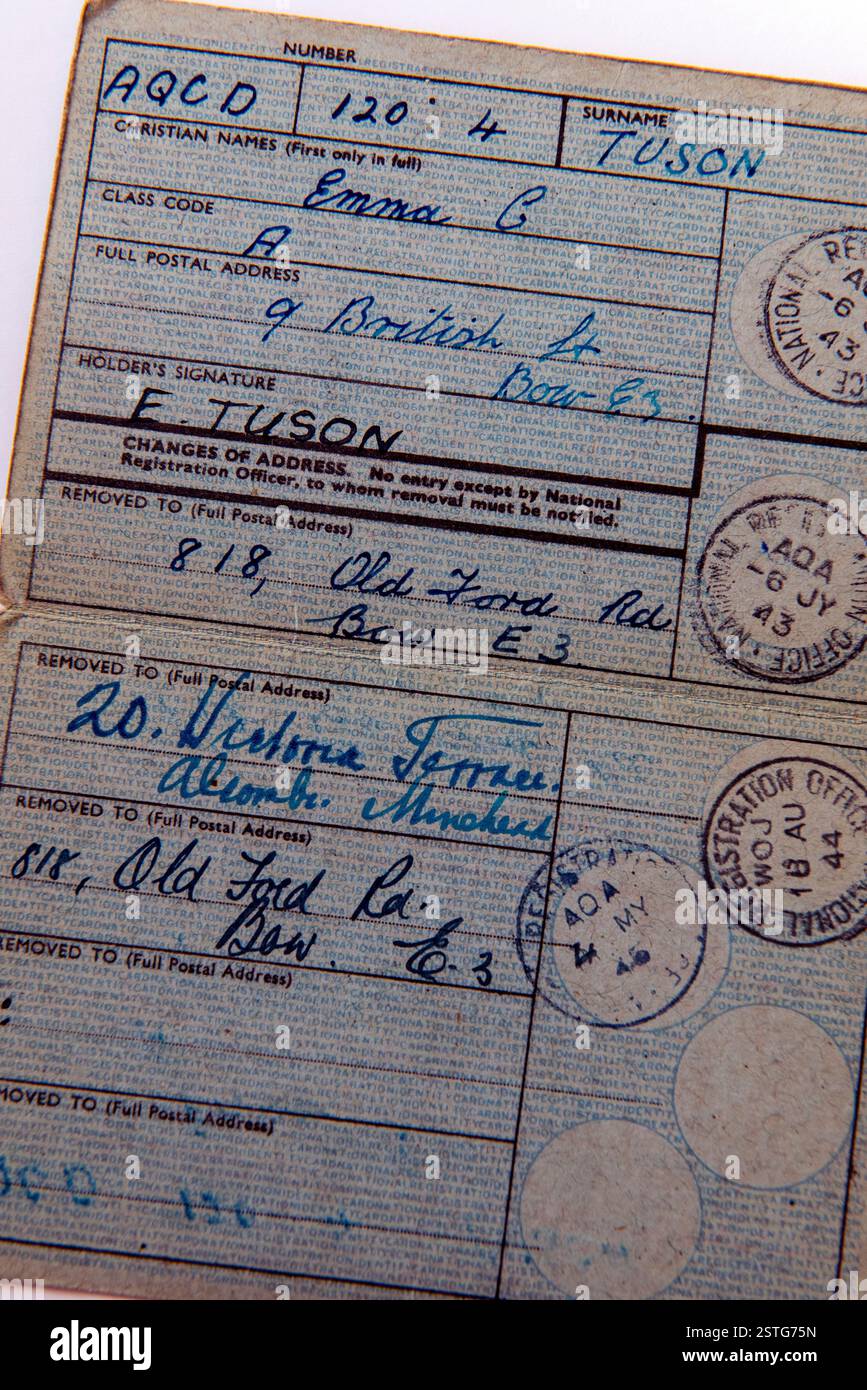 NUMBER
AQCD 120 : 4
SURNAME
TUSON
CHRISTIAN NAMES (First only in full)
Emma C
CLASS CODE
A
FULL POSTAL ADDRESS
9 British St
Bow E3.
HOLDER'S SIGNATURE
E. TUSON
CHANGES OF ADDRESS. No entry except by National
Registration Officer, to whom removal must be notified.
REMOVED TO (Full Postal Address)
818, Old Ford Rd
Bow E3.
REMOVED TO (Full Postal Address)
20. Victoria Terrace.
Alcombe. Minehead
REMOVED TO (Full Postal Address)
818, Old Ford Rd.
Bow. E.3
REMOVED TO (Full Postal Address)
MOVED TO (Full Postal Address)
NATIONAL RE
-6
43
AQA
-6 JY
43
NATIONAL REGISTRATION OFFICE
WOJ
18 AU
44
AQA
MY
45
alamy
Image ID: 2STG75N
www.alamy.com